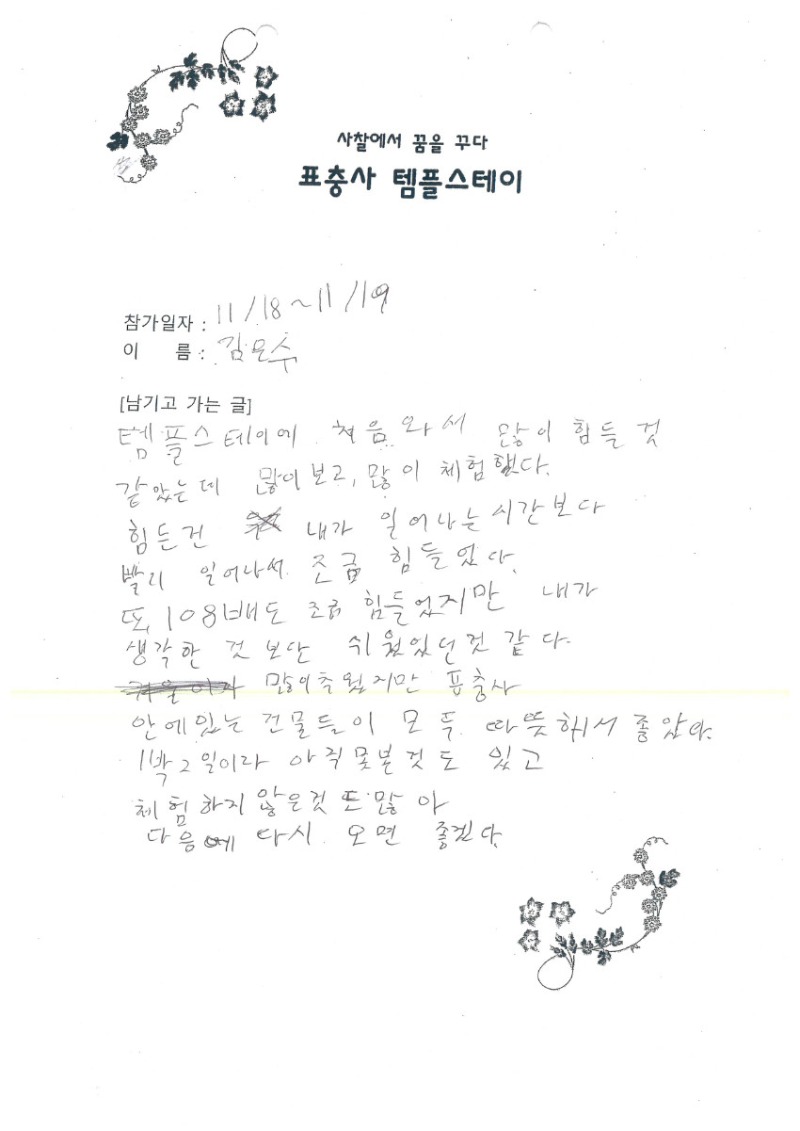 사찰에서 꿈을 꾸다
표충사 템플스테이
참가일자 : 11/18~11/19
이 름 : 김모수
[남기고 가는 글]
템플스테이에 처음 와서 많이 힘들 것
같았는데 많이보고, 많이 체험했다.
힘든건 내가 일어나는 시간보다
빨리 일어나서 조금 힘들었다.
또, 108배도 조금 힘들었지만 내가
생각한 것 보단 쉬웠었던것 같다.
많이추웠지만 표충사
안에있는 건물들이 모두 따뜻해서 좋았다.
1박2일이라 아직못본것도 있고
체험하지 않은것 또 많아
다음에 다시 오면 좋겠다.